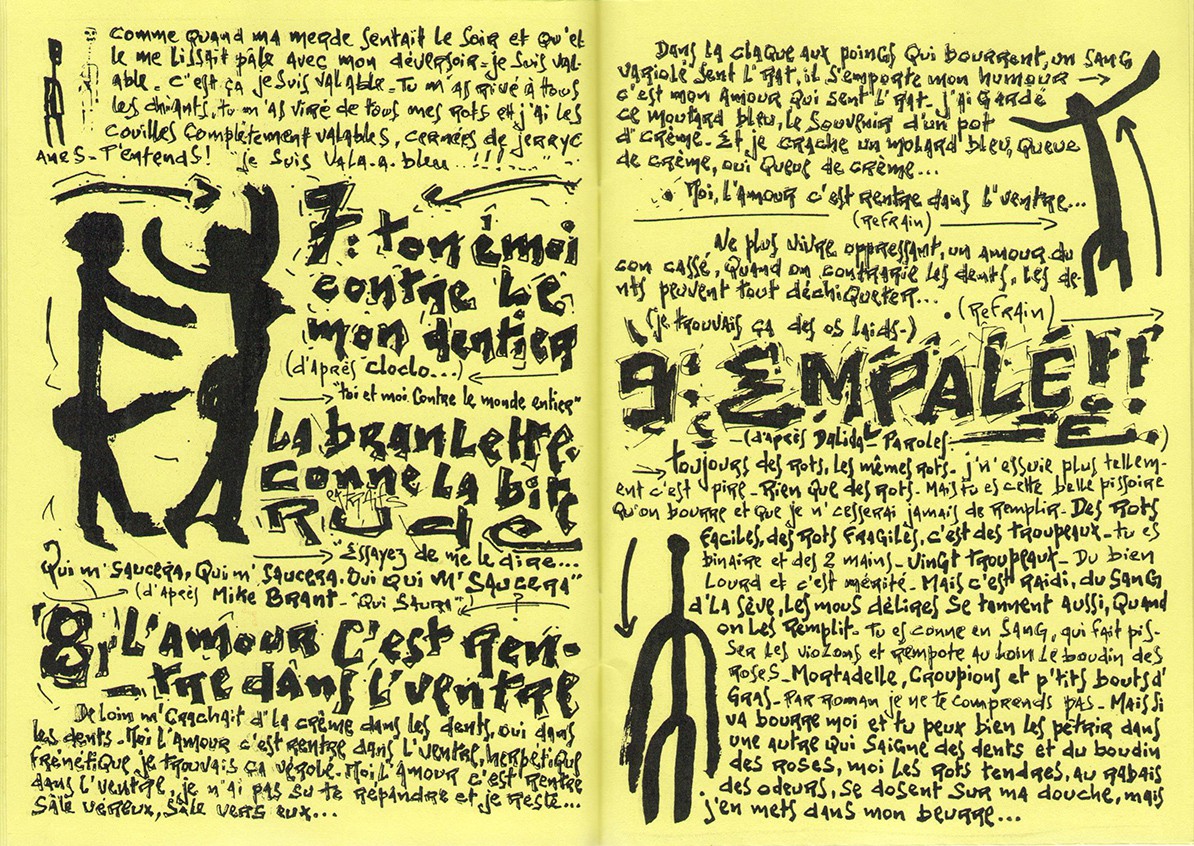 Comme quand ma merde sentait le soir et qu'el
le me lissait pâle avec mon déversoir = je suis val-
able = c'est ça je suis valable = Tu m'as rivé à tous
les chiants, tu m'as viré de tous mes rots et j'ai les
couilles complètement valables, cernées de jerryc
anes - T'entends! je suis vala-a-bleu ..!!!.....
7: ton émoi
contre le
mon dentier
(d'après cloclo...)
"toi et moi contre le monde entier"
La branlette,
conne la bit
Rude
extraits
"Essayez de me le dire...
Qui m'saucera, qui m'saucera. Oui qui m'saucera"
(d'après Mike Brant - "Qui saura"
8, L'amour c'est ren-
tre dans l'ventre
De loin m'crachait d'la crème dans les dents, oui dans
les dents - Moi l'amour c'est rentre dans l'ventre, herpétique
frénétique je trouvais ça vérolé - Moi l'amour c'est rentre
dans l'ventre, je n'ai pas su te répandre et je reste...
Sâle véreux, sâle vers eux...
Dans la claque aux poings qui bourrent, un sang
variolé sent l'rat, il s'emporte mon humour
c'est mon amour qui sent l'rat - j'ai gardé
ce moutard bleu, le souvenir d'un pot
d'crème - Et je crache un molard bleu, queue
de crème, oui queue de crème...
Moi, l'amour c'est rentre dans l'ventre...
(Refrain)
Ne plus vivre oppressant, un amour du
con cassé, quand on contrarie les dents, les de-
nts peuvent tout déchiqueter...
(Refrain)
(je trouvais ça des os laids -)
9: EMPALÉ!!
(d'après Dalida - Paroles )
Toujours des rots, les mêmes rots - j'n'essuie plus tellem-
ent c'est pire - Rien que des rots - Mais tu es cette belle pissoire
qu'on bourre et que je n'cesserai jamais de remplir - Des rots
faciles, des rots fragiles, c'est des troupeaux - tu es
binaire et des 2 mains - vingt troupeaux - Du bien
lourd et c'est mérité - Mais c'est raidi, du sang
d'la sève, les mous délires se tannent aussi, quand
on les remplit - Tu es conne en sang, qui fait pis-
ser les violons et rempote au loin le boudin des
roses - Mortadelle, croupions et p'tits bouts d'
gras - Par roman je ne te comprends pas - Mais si
va bourre moi et tu peux bien les pétrir dans
une autre qui saigne des dents et du boudin
des roses, moi les rots tendres, au rabais
des odeurs, se dosent sur ma douche, mais
j'en mets dans mon beurre...